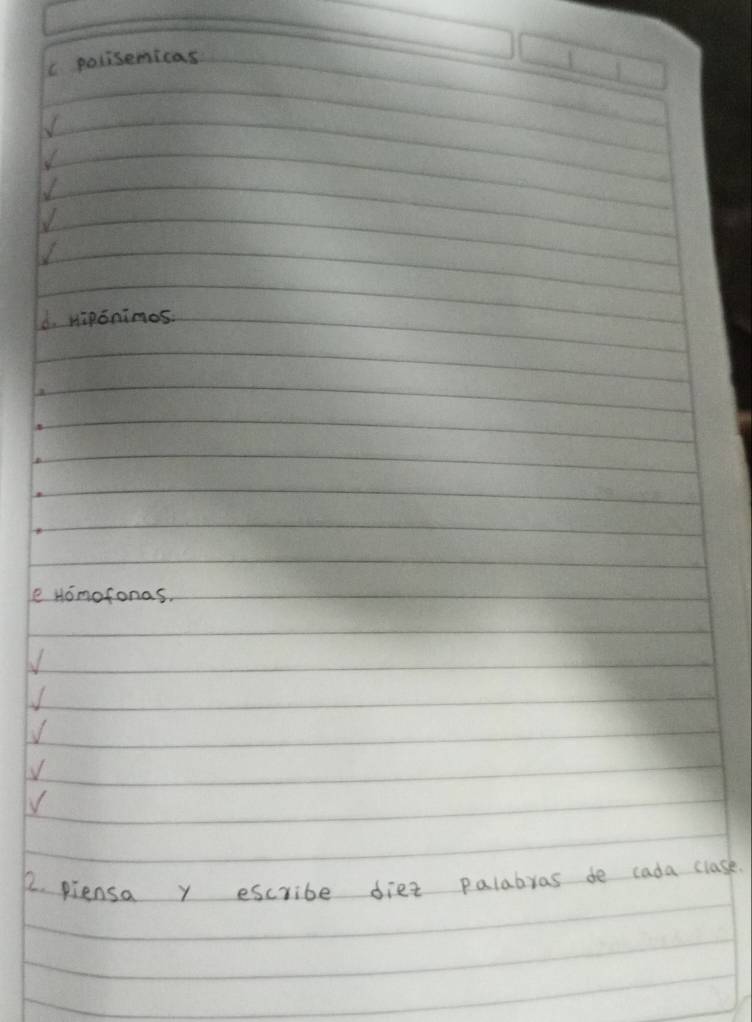 c polisemicas
d. Hipónimos.
e Hómofonas.
2. Piensa y escribe diez palabras de cada clase.